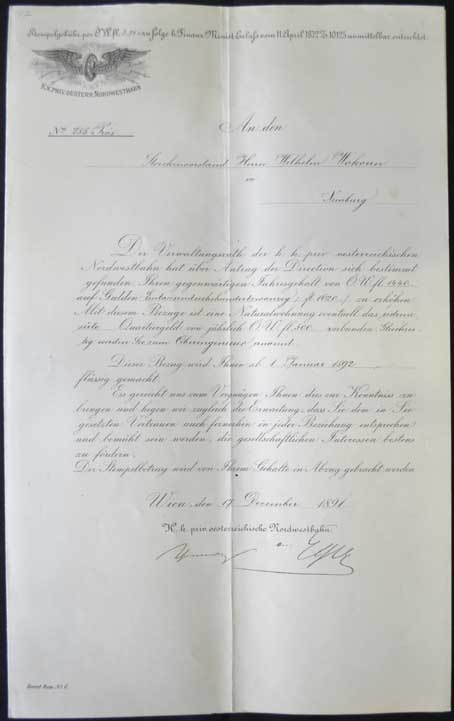 Stempelgebühr per Ö.W.fl. zufolge h. Finanz Minist. Erlasse vom 11. April 1872 Z 10125 unmittelbar entrichtet.
K.K. PRIV. OESTERR. NORDWESTBAHN
No. 755 Präs.
An den
Streckenvorstand Herrn Wilhelm Wokoun
in
Nimburg
Der Verwaltungsrath der k. k. priv. oesterreichischen
Nordwestbahn hat über Antrag der Direction sich bestimmt
gefunden Ihren gegenwärtigen Jahresgehalt von Ö.W.fl. 1440.
auf Gulden fl. 1620 zu erhöhen.
Mit diesem Bezuge ist eine Naturalwohnung eventuell das
Quartiergeld von jährlich Ö.W.fl. 500 verbunden.
werden Sie zum Oberingenieur ernannt.
Dieser Bezug wird Ihnen ab 1. Januar 1892
flüssig gemacht.
Es gereicht uns zum Vergnügen Ihnen dies zur Kenntniss zu
bringen und hegen wir zugleich die Erwartung, dass Sie dem in Sie
gesetzten Vertrauen auch fernerhin in jeder Beziehung entsprechen
und bemüht sein werden, die gesellschaftlichen Interessen bestens
zu fördern.
Der Stempelbetrag wird von Ihrem Gehalte in Abzug gebracht werden.
Wien, den 17. Dezember 1891
K. k. priv. oesterreichische Nordwestbahn.